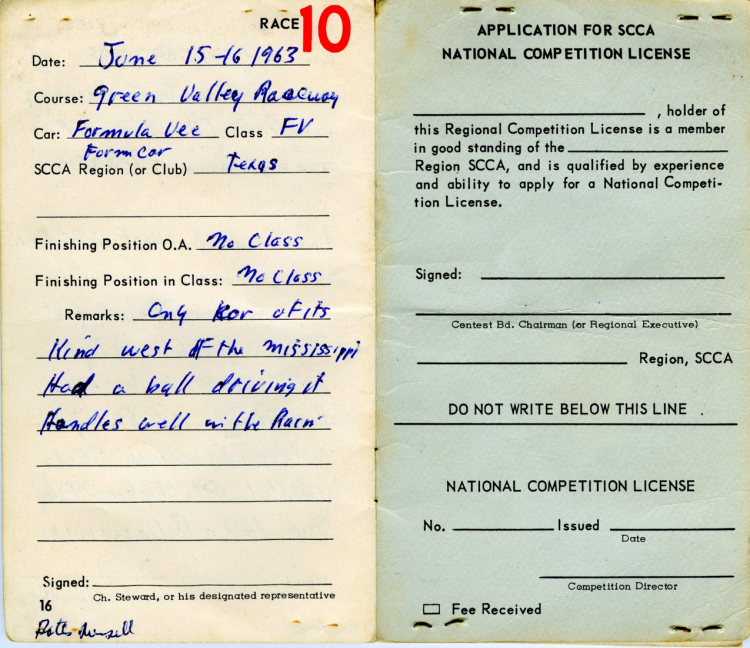 RACE 10
Date: June 15-16 1963
Course: Green Valley Raceway
Car: Formula Vee Class FV
Formcar
SCCA Region (or Club) Texas
Finishing Position O.A. No Class
Finishing Position in Class: No Class
Remarks: Only kor of its
Kind west of the Mississippi
Had a ball driving it
Handles well in the Rain
Signed:
Ch. Steward, or his designated representative
16
APPLICATION FOR SCCA
NATIONAL COMPETITION LICENSE
, holder of
this Regional Competition License is a member
in good standing of the
Region SCCA, and is qualified by experience
and ability to apply for a National Competi-
tion License.
Signed:
Contest Bd. Chairman (or Regional Executive)
Region, SCCA
DO NOT WRITE BELOW THIS LINE .
NATIONAL COMPETITION LICENSE
No. Issued
Date
Competition Director
Fee Received